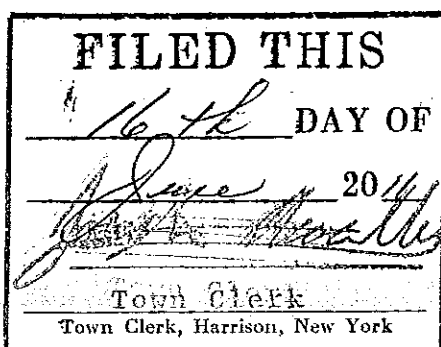 FILED THIS
16th DAY OF
June 20
Town Clerk
Town Clerk, Harrison, New York